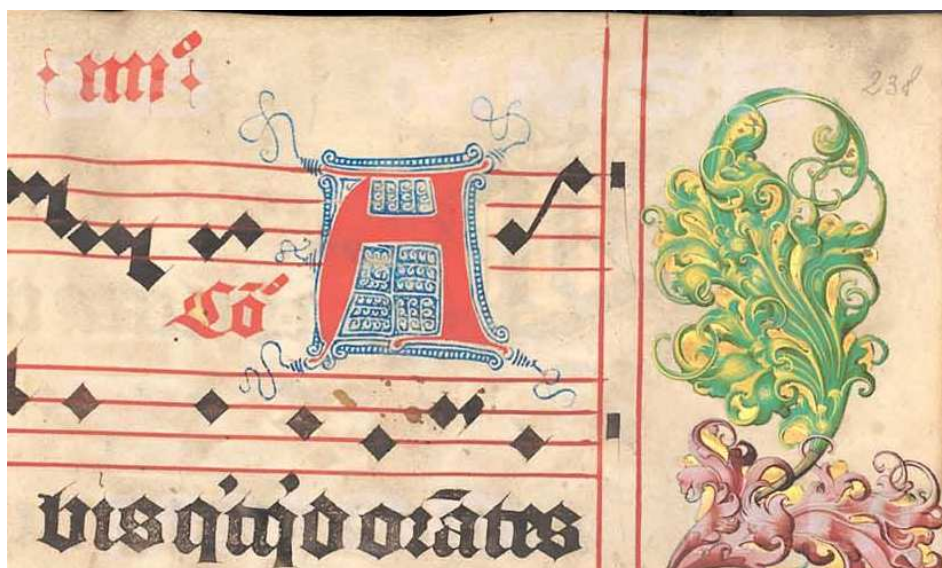 · iiiiº ·
238
Cō A
bis qⁱcqⁱd orātes